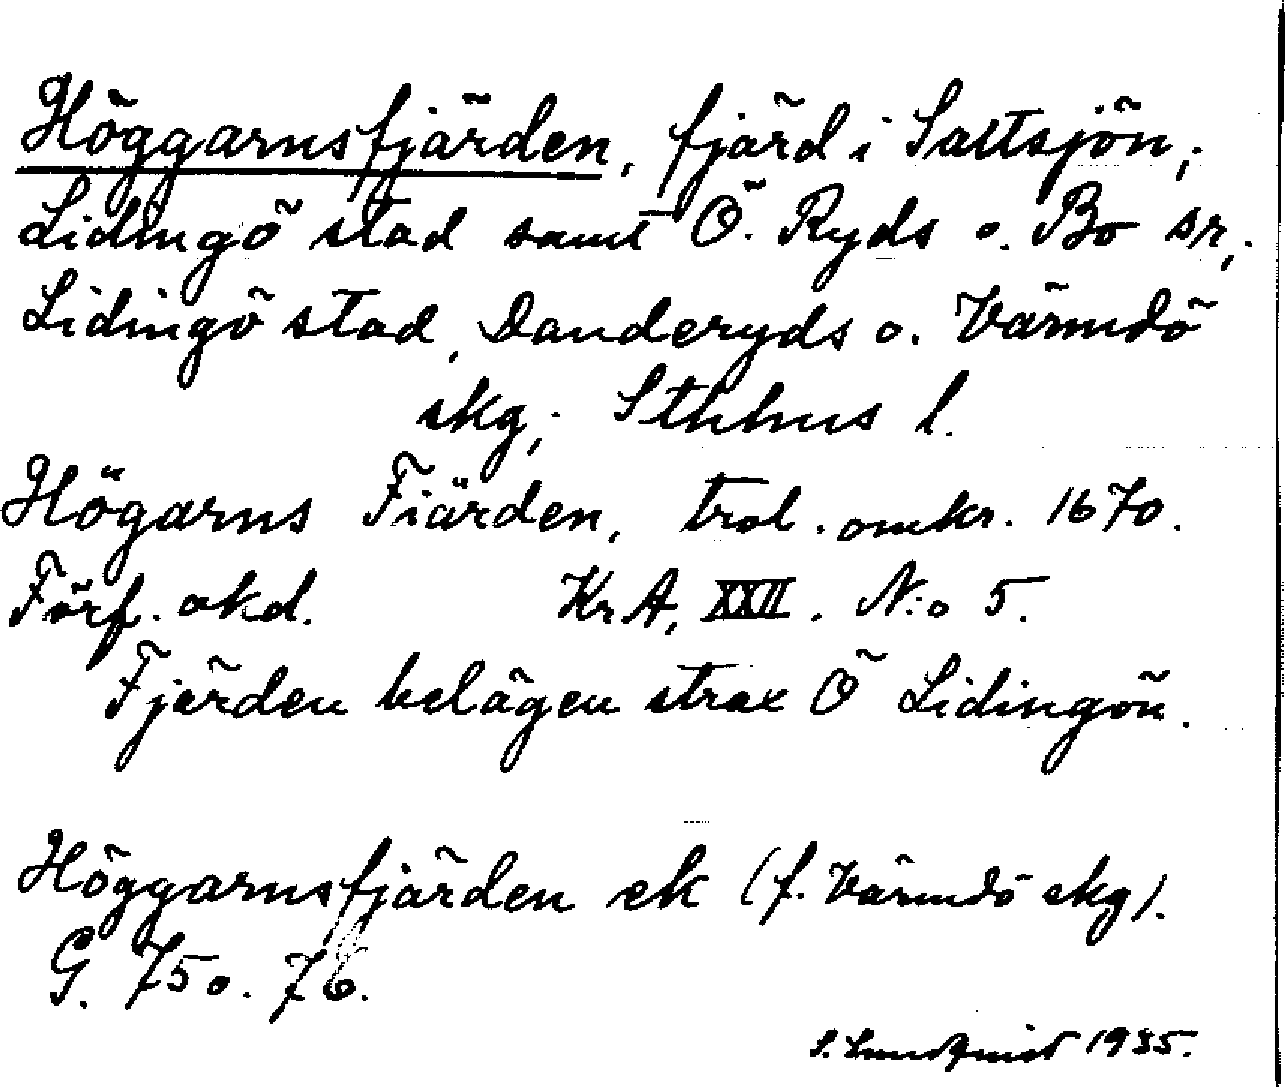 Höggarnsfjärden, fjärd i Saltsjön;
Lidingö stad samt Ö. Ryds o. Bo sr,
Lidingö stad, Danderyds o. Värmdö
skg; Sthlms l.
Högarns Fiärden, trol. omkr. 1670.
Förf. okd. KrA, XXII. N:o 5.
Fjärden belägen strax Ö Lidingön.
Höggarnsfjärden ek (f. Värmdö skg).
G. 75 o. 76.
S. Lundquist 1935.